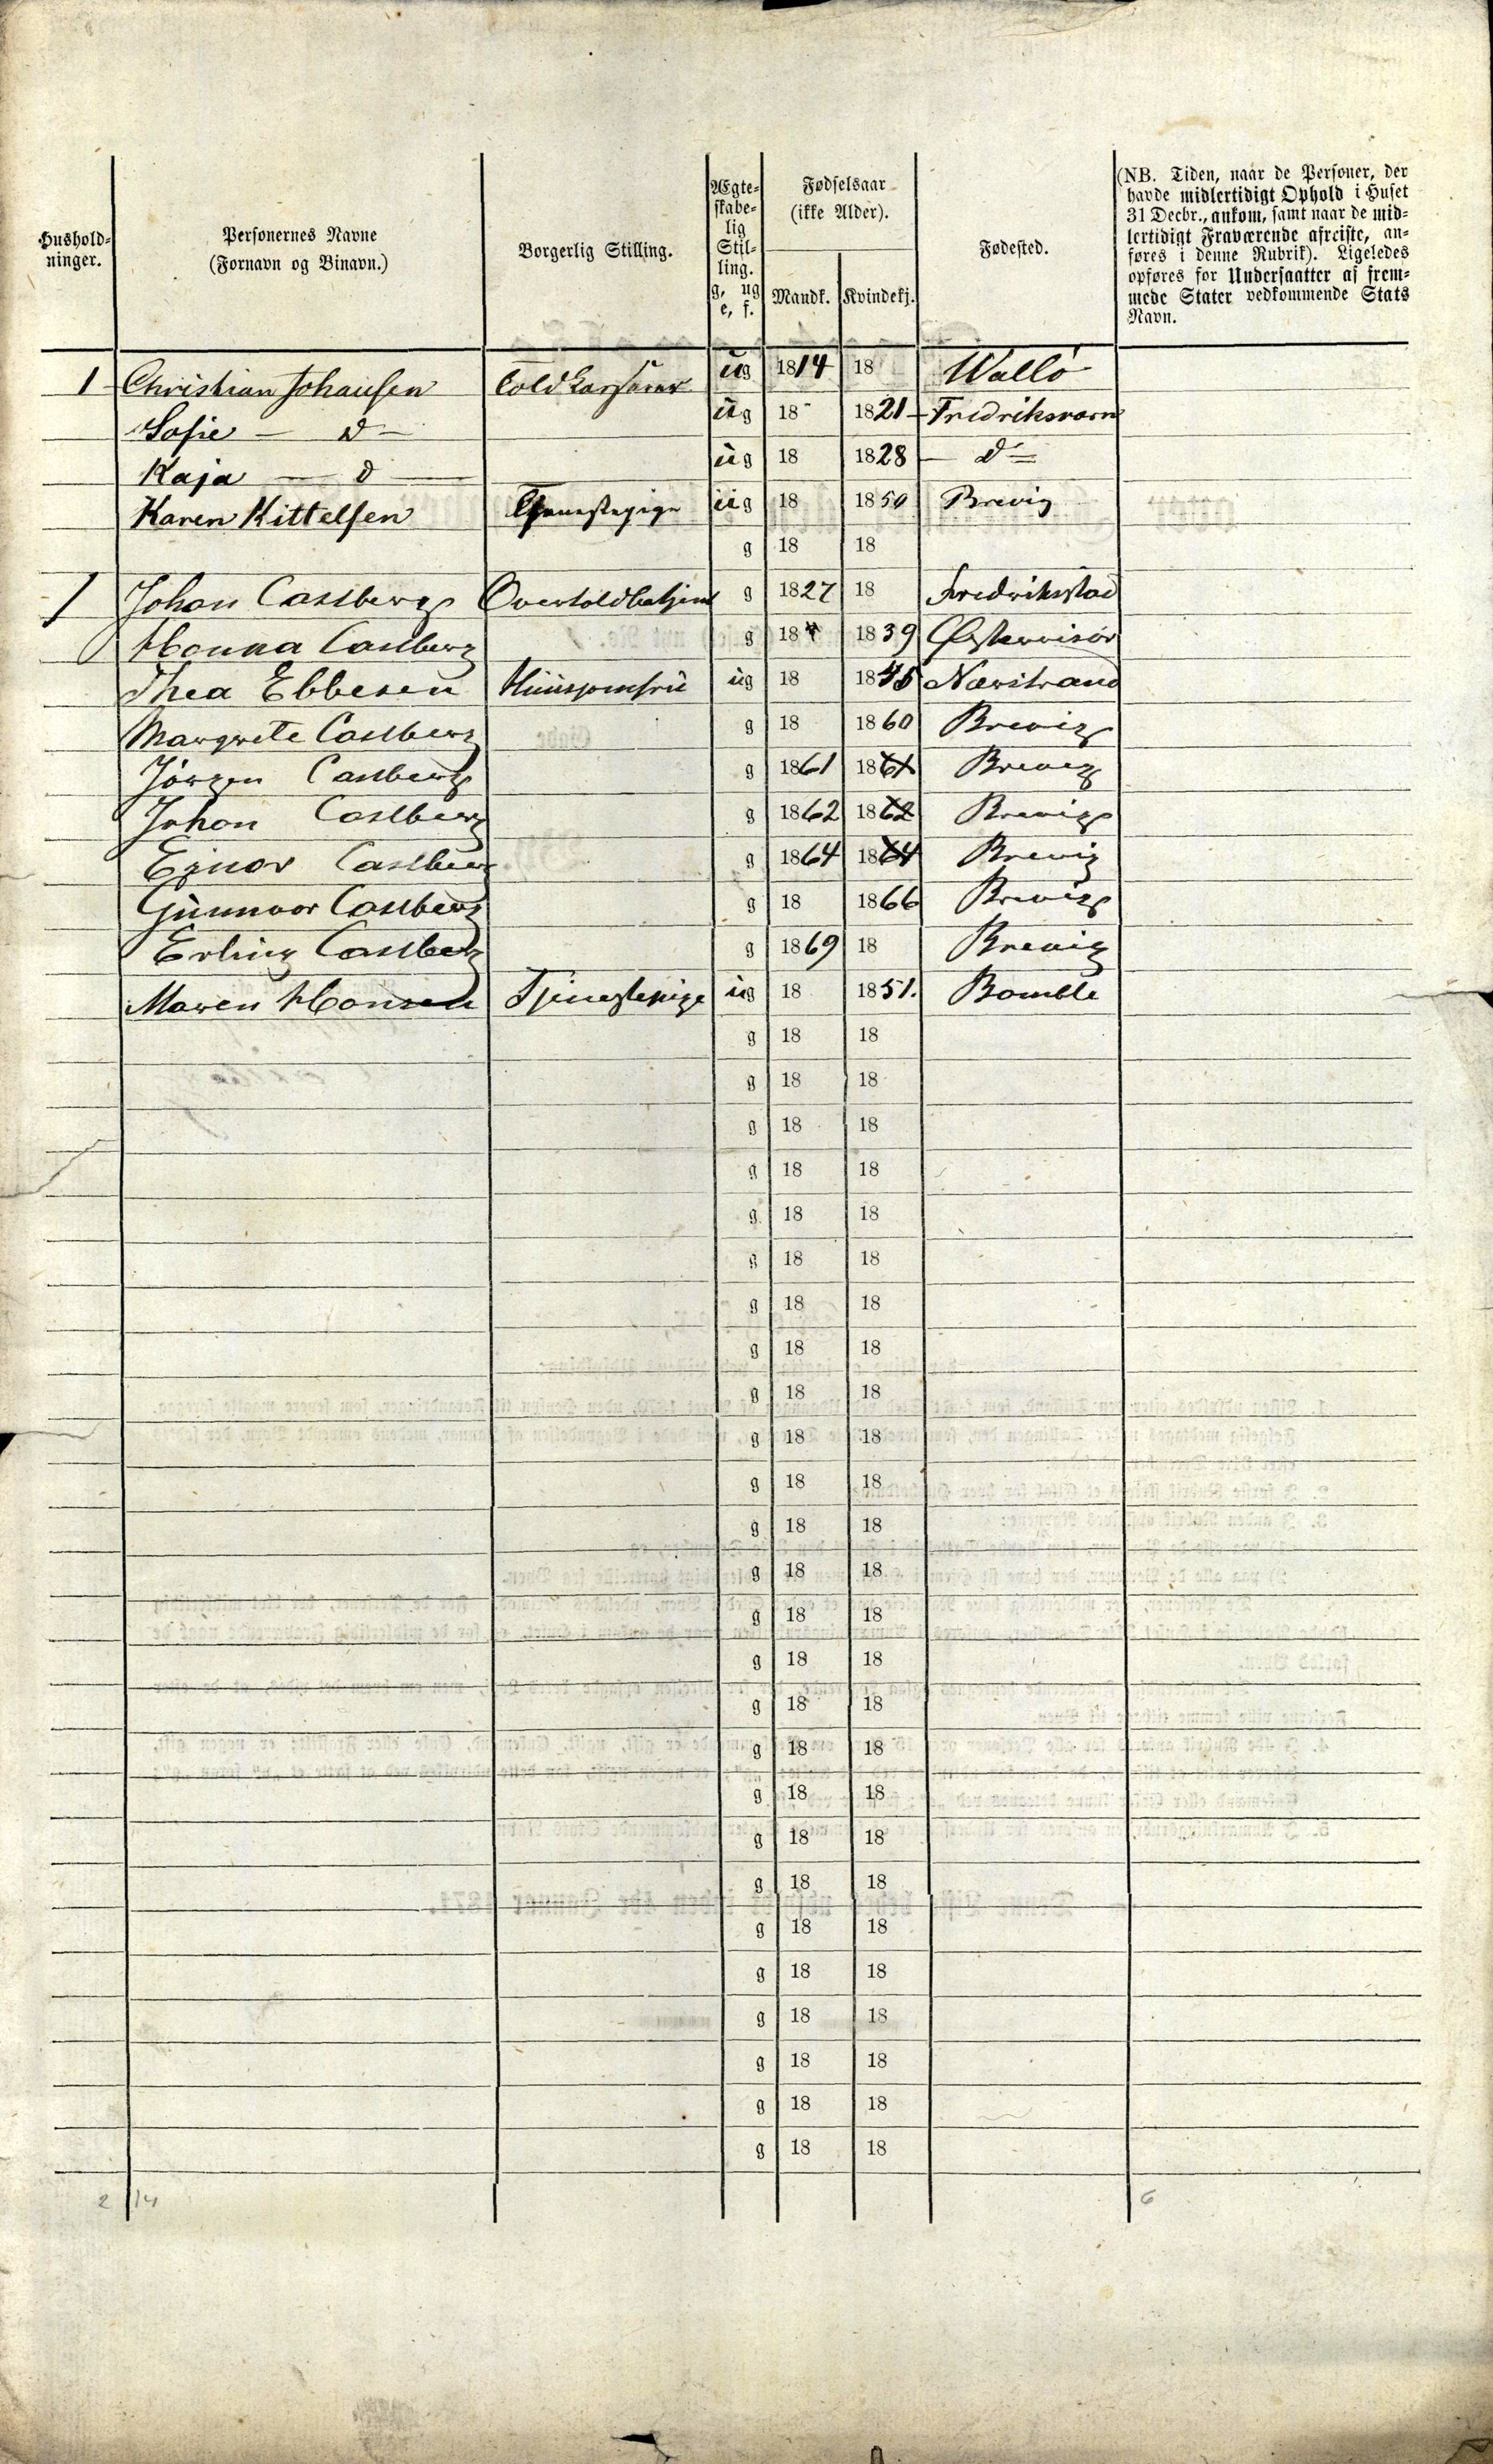 Hushold-
ninger.
Personernes Navne
(Fornavn og Binavn.)
Borgerlig Stilling.
Ægte-
skabe-
lig
Stil-
ling.
g, ug
e, f.
Fødselsaar
(ikke Alder).
Mandk. Kvindekj.
Fødested.
(NB. Tiden, naar de Personer, der
havde midlertidigt Ophold i Huset
31 Decbr., ankom, samt naar de mid-
lertidigt Fraværende afreiste, an-
føres i denne Rubrik). Ligeledes
opføres for Undersaatter af frem-
mede Stater vedkommende Stats
Navn.
1 Christian Johansen Toldkasserer ug 1814 18 Wallö
Sofie — d — ug 18 1821 — Fredriksværn
Kaja — d — ug 18 1828 — d —
Karen Kittelsen Tjenestepige ug 18 1850 Brevig
g 18 18
1 Johan Castberg Overtoldbetjent g 1827 18 Fredrikstad
Hanna Castberg g 18 1839 Østerrisör
Thea Ebbesen Huusjomfru ug 18 1845 Nærstrand
Margrete Castberg g 18 1860 Brevig
Jörgen Castberg g 1861 1861 Brevig
Johan Castberg g 1862 1862 Brevig
Ejnar Castberg g 1864 1864 Brevig
Gunnvor Castberg g 18 1866 Brevig
Erling Castberg g 1869 18 Brevig
Maren Hansen Tjenestepige ug 18 1851. Bamble
g 18 18
g 18 18
g 18 18
g 18 18
g 18 18
g 18 18
g 18 18
g 18 18
g 18 18
g 18 18
g 18 18
g 18 18
g 18 18
g 18 18
g 18 18
g 18 18
g 18 18
g 18 18
g 18 18
g 18 18
g 18 18
g 18 18
g 18 18
g 18 18
g 18 18
g 18 18
2 14 6